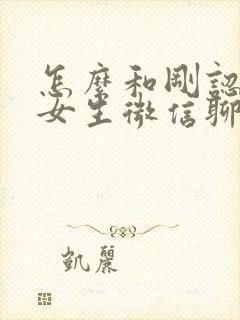 怎麼和剛認
女生微信聊
凱麗